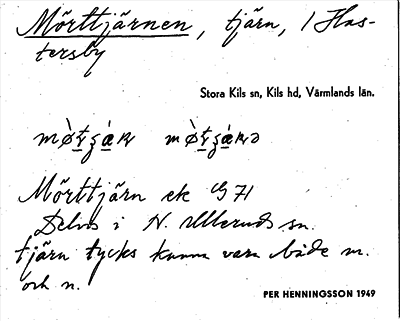 Mörttjärnen, tjärn, i Has-
tersby
Stora Kils sn, Kils hd, Värmlands län.
Mörttjärn ek G 71
Delvis i N. Ulleruds sn.
tjärn tycks kunna vara både m.
och n.
PER HENNINGSSON 1949